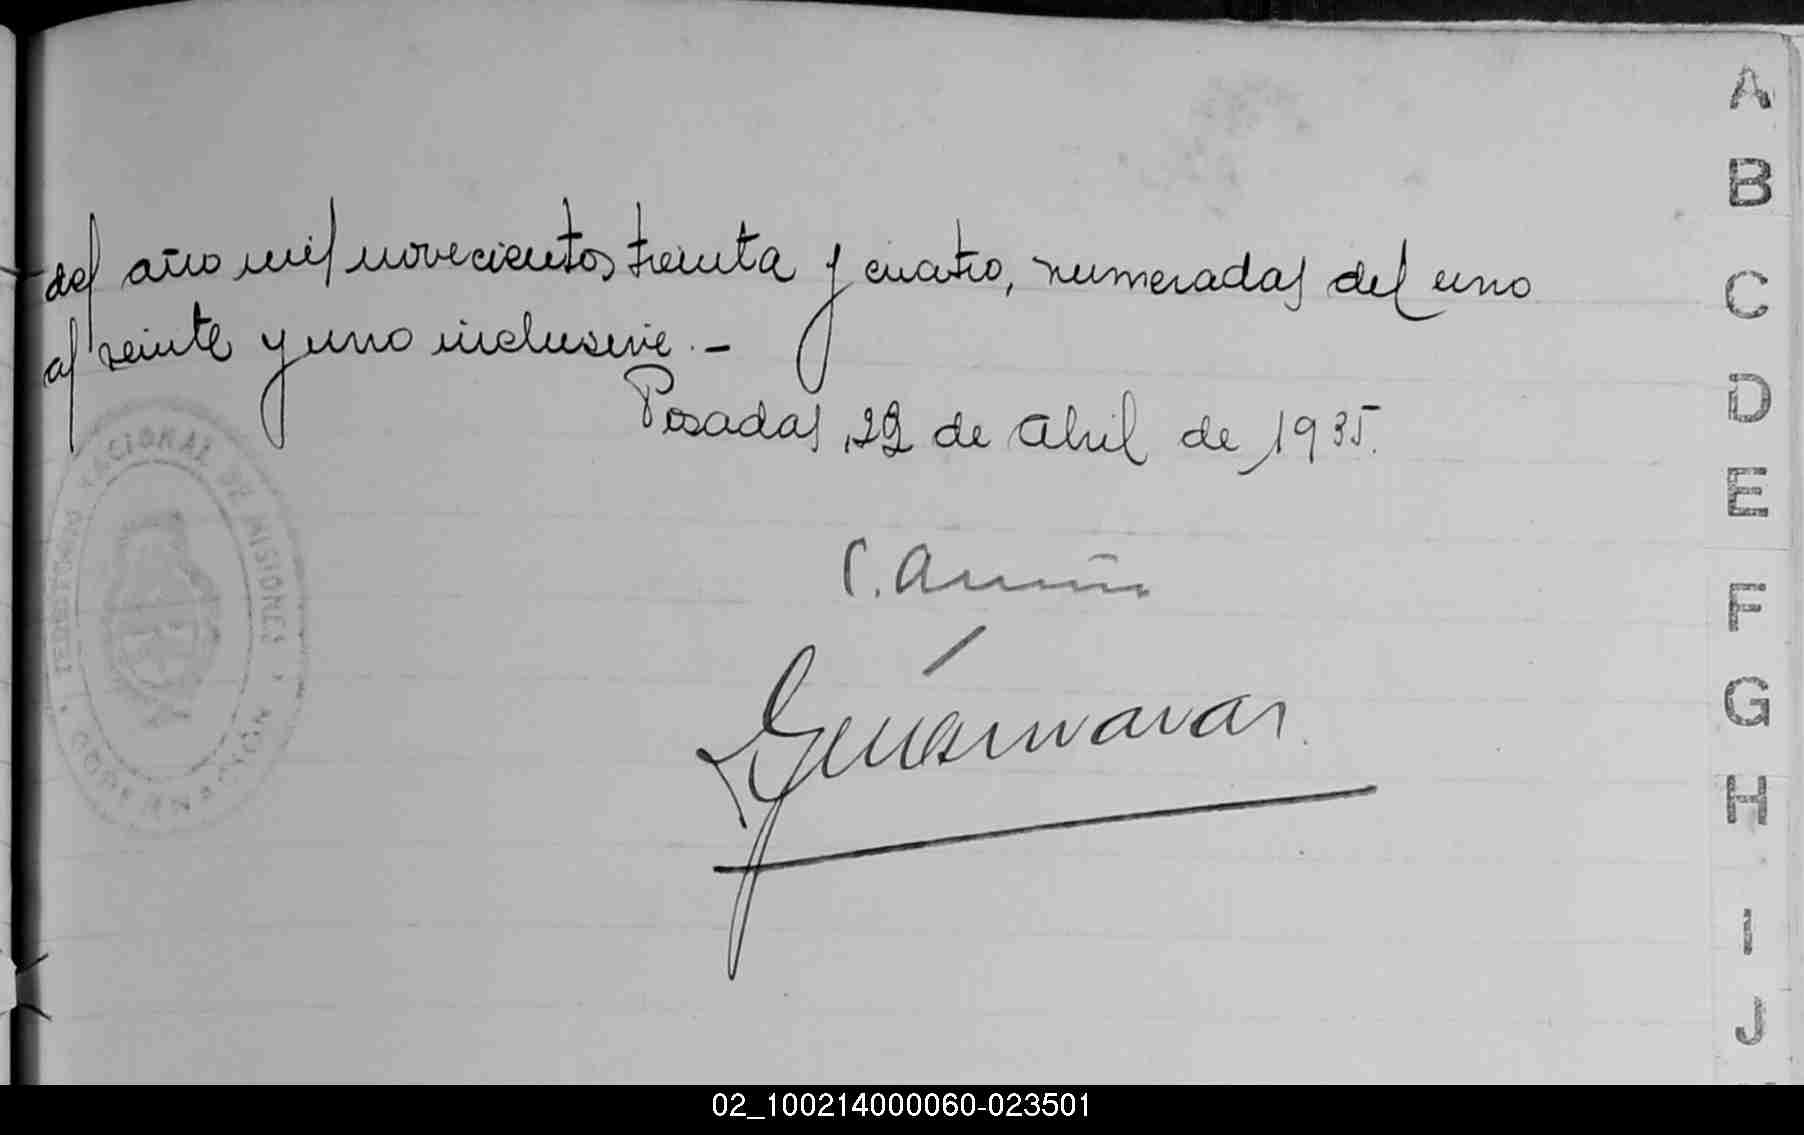 del año mil novecientos treinta y cuatro, numeradas del uno
al veinte y uno inclusive. -
Posadas, 22 de Abril de 1935.
C.
TERRITORIO NACIONAL DE MISIONES
GOBERNACION
A
B
C
D
E
F
G
H
I
J
02_100214000060-023501